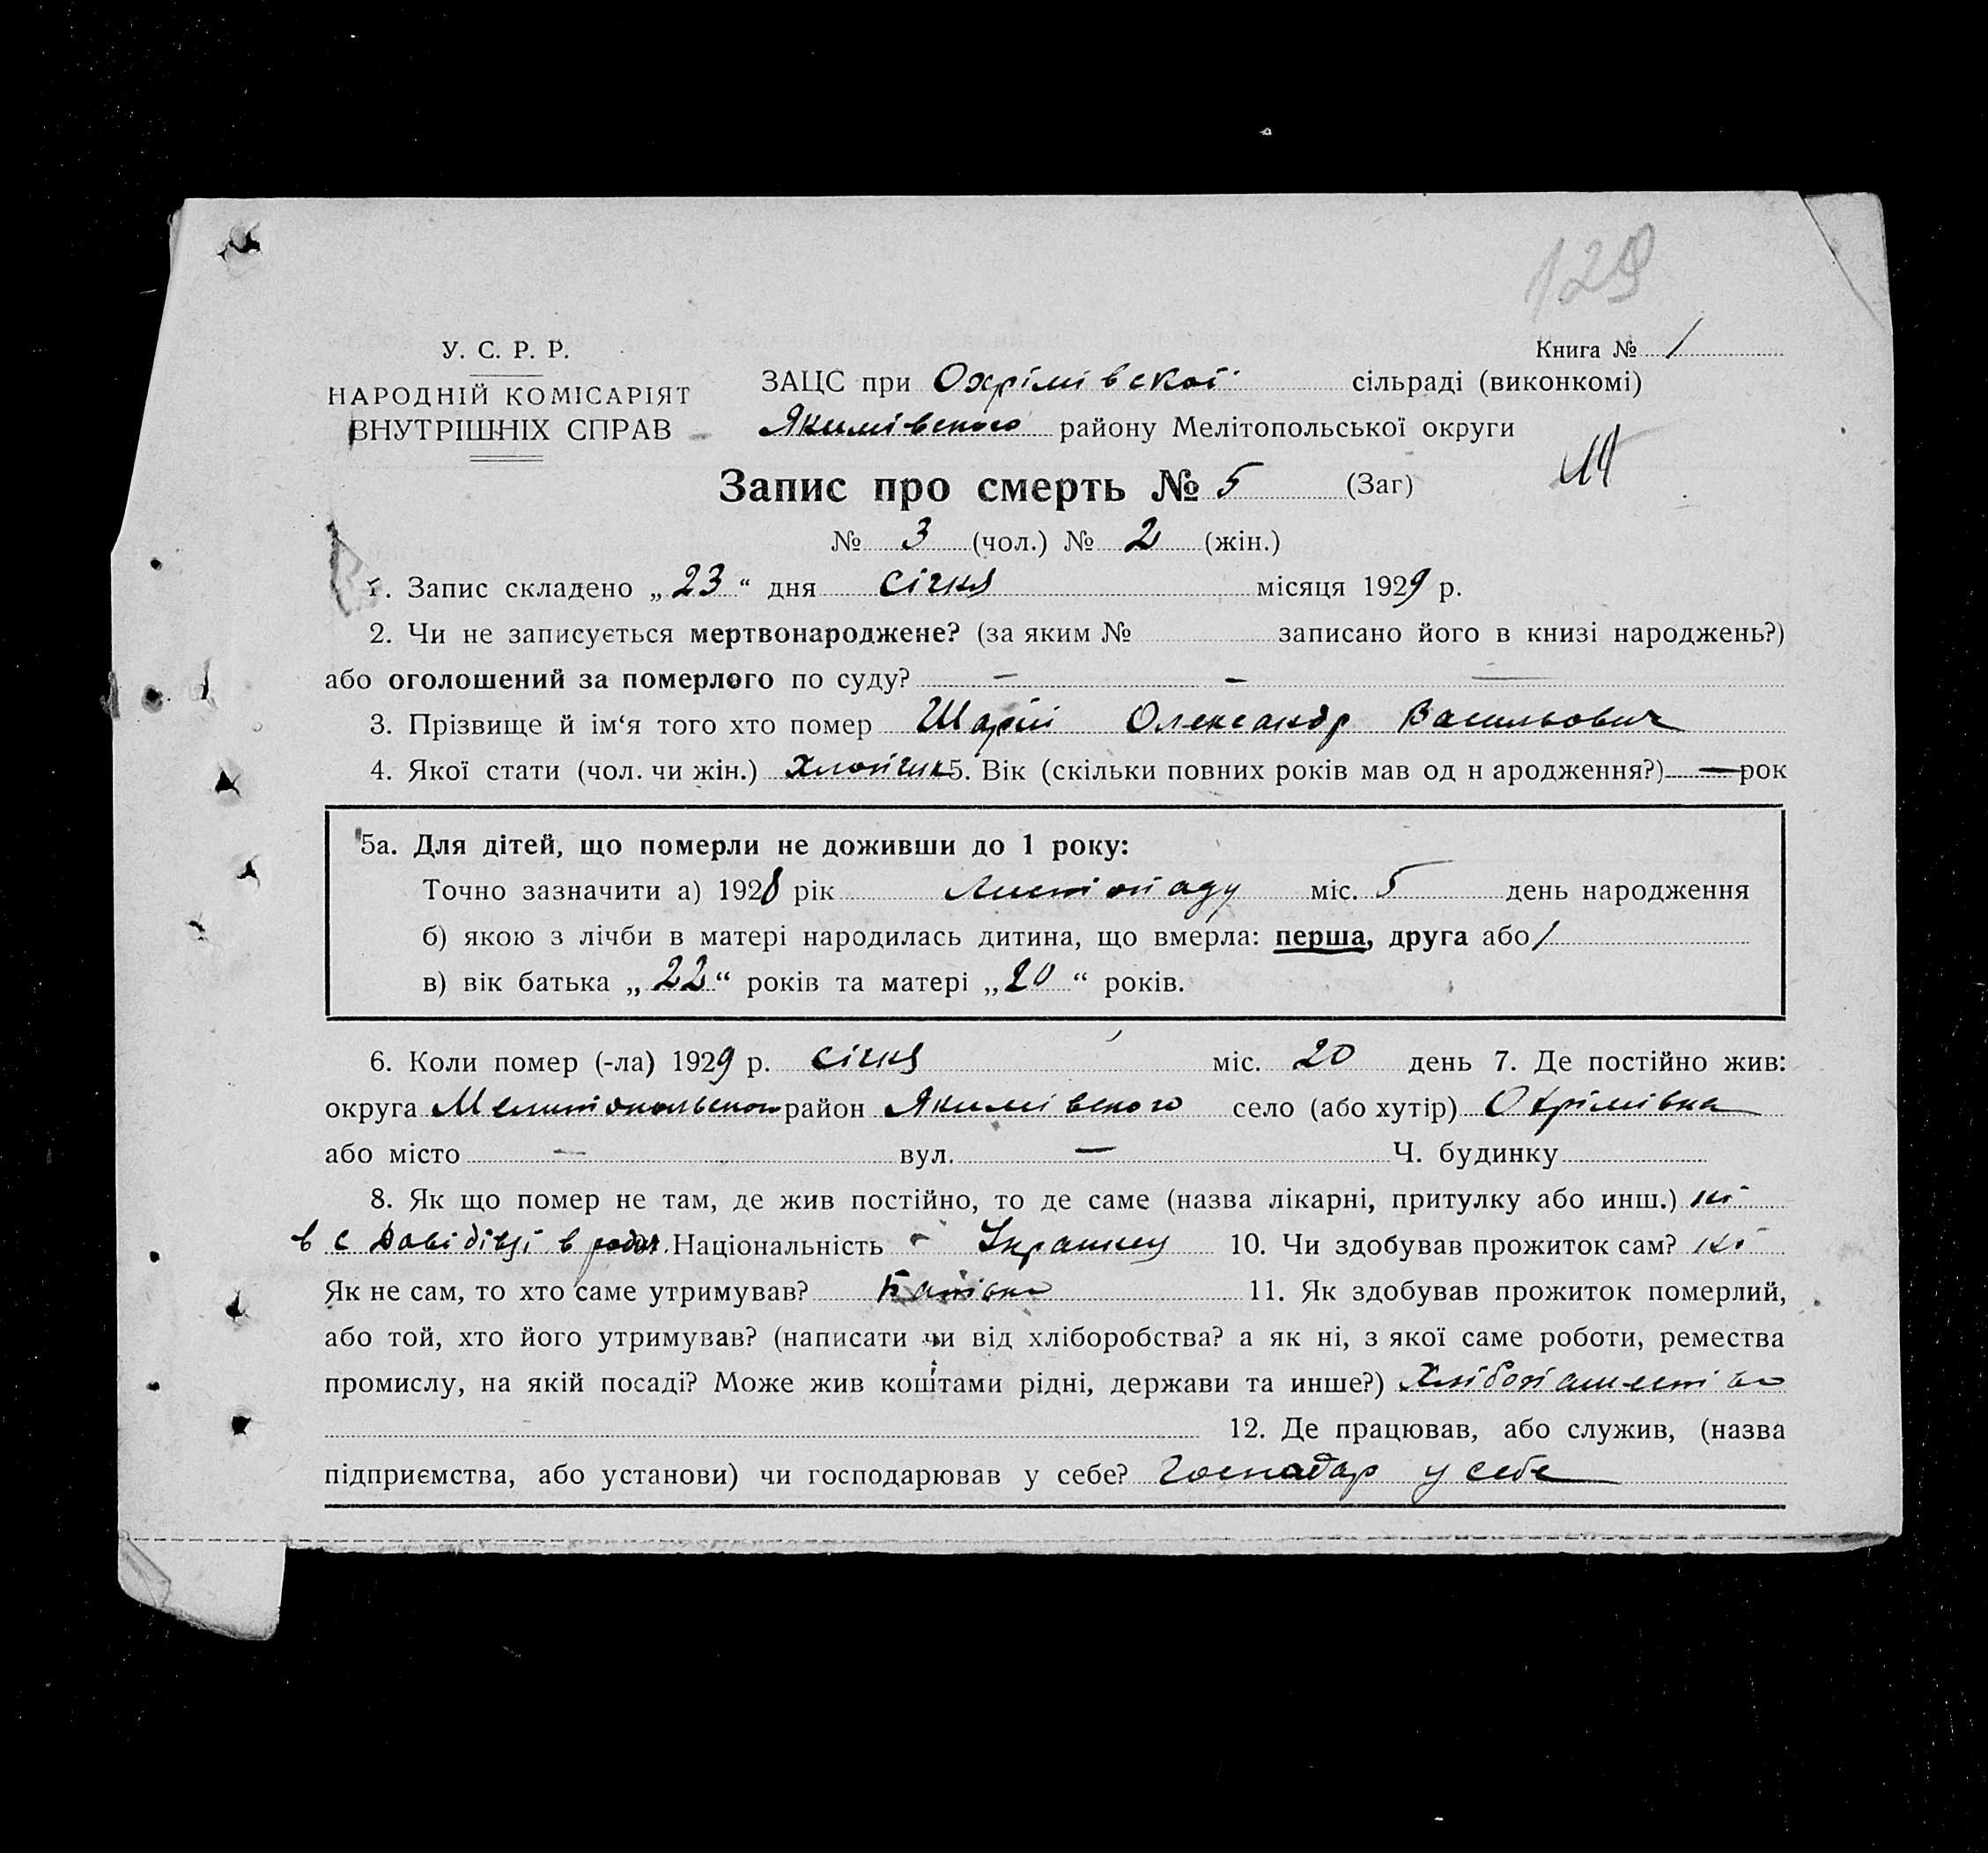 129
У. С. Р. Р.
НАРОДНІЙ КОМІСАРІЯТ
ВНУТРІШНІХ СПРАВ
Книга № 1
ЗАЦС при Охрімівскої сільраді (виконкомі)
Якимівского району Мелітопольської округи
Запис про смерть № 5 (Заг)
№ 3 (чол.) № 2 (жін.)
1. Запис складено „23“ дня січня місяця 1929 р.
2. Чи не записується мертвонароджене? (за яким № записано його в книзі народжень?)
або оголошений за померлого по суду? — — —
3. Прізвище й ім‘я того хто помер Шарій Олександр Васильович
4. Якої стати (чол. чи жін.) Хлопчик 5. Вік (скільки повних років мав од н ародження?) — рок
5а. Для дітей, що померли не доживши до 1 року:
Точно зазначити а) 1928 рік Листопаду міс. 5 день народження
б) якою з лічби в матері народилась дитина, що вмерла: перша, друга або /
в) вік батька „22“ років та матері „20“ років.
6. Коли помер (-ла) 1929 р. січня міс. 20 день 7. Де постійно жив:
округа район Якимівского село (або хутір) Охрімівка
або місто — вул. — Ч. будинку
8. Як що помер не там, де жив постійно, то де саме (назва лікарні, притулку або инш.) ні
в с Давідівці в Національність Украінец 10. Чи здобував прожиток сам? ні
Як не сам, то хто саме утримував? Батько 11. Як здобував прожиток померлий,
або той, хто його утримував? (написати чи від хліборобства? а як ні, з якої саме роботи, ремества
промислу, на якій посаді? Може жив коштами рідні, держави та инше?)
12. Де працював, або служив, (назва
підприємства, або установи) чи господарював у себе? Господар у себе